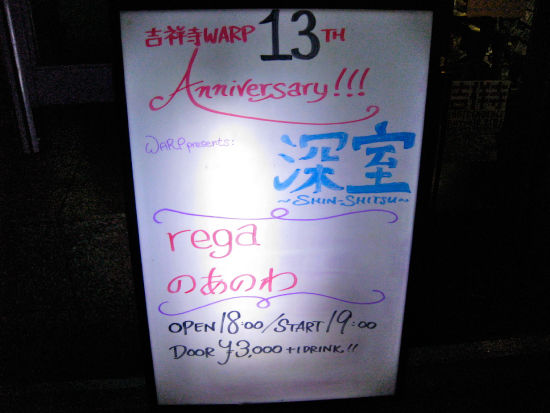 吉祥寺WARP 13TH
Anniversary!!!
WARP presents:
深室
~SHIN-SHITSU~
rega
のあのわ
OPEN 18:00/START 19:00
DOOR ¥3,000+1DRINK!!